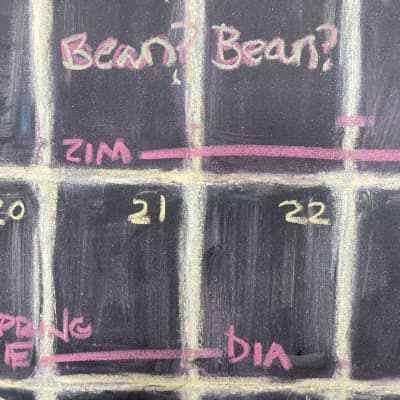 Bean? Bean?
ZIM
20 21 22
PRING
E DIA